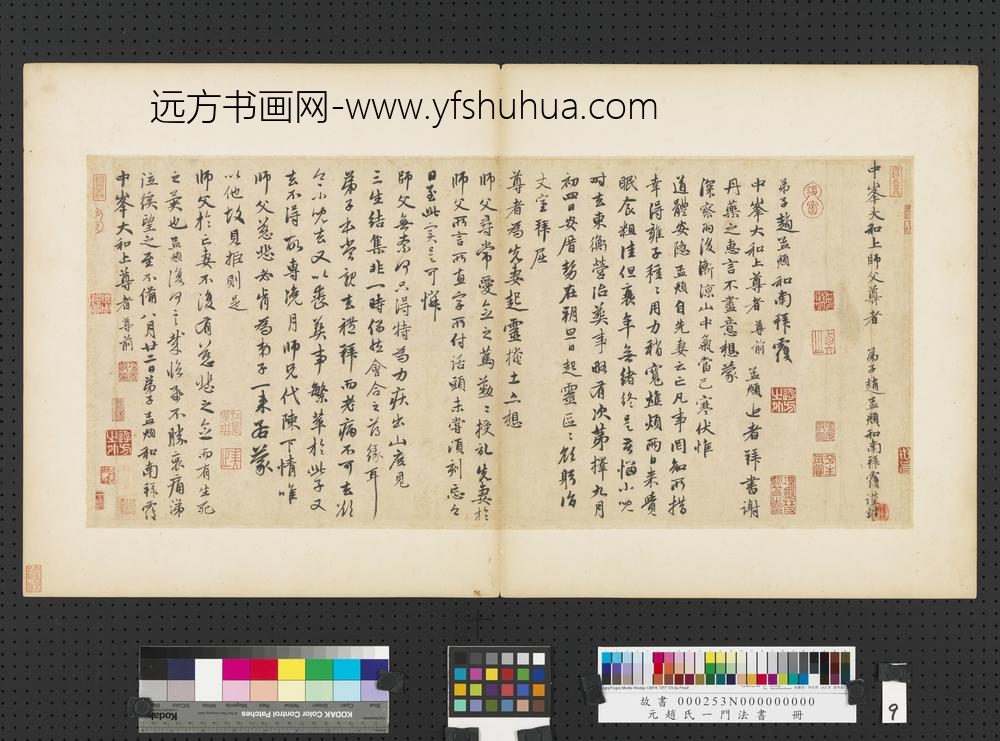 远方书画网-www.yfshuhua.com
中峯大和上師父尊者 弟子趙孟頫和南拜覆謹封
弟子趙孟頫和南拜覆
中峯大和上尊者尊前 孟頫近者拜書謝
丹藥之惠言不盡意想蒙
深察雨後漸涼山中氣當已寒伏惟
道體安隱孟頫自先妻云亡凡事罔知所措
幸得雍子稚稚用力稍寬憔煩兩日來賨
眠食粗佳但衰年無緒終是苦惱小兒
時去東衡營治葬事略有次第擇九月
初四日安厝勢在朔旦日起靈區區欲躬詣
丈室拜屈
尊者為先妻起靈掩土亦想
師父尋常愛念之篤懃懃授記先妻於
師父所言所直字所付話頭未嘗頃刻忘之
日至此實是可憐
師父無柰何只得特為力疾出山庶見
三生結集非一時偶然會合之薄緣耳
弟子本當親去禮拜而老病不可去欲
令小兒去又以喪葬事繁萃於此子又
去不得所專浼月師兄代陳下情唯
師父慈悲必肯為弟子一來若蒙
以他故見拒則是
師父於亡妻不復有慈悲之念而有生死
之異也孟頫復何言哉臨紙不勝哀痛涕
泣俟望之至不備八月廿二日弟子孟頫和南拜覆
中峯大和上尊者尊前
Kodak
KODAK Color Control Patches
故書 000253N000000000
元趙氏一門法書 冊
9